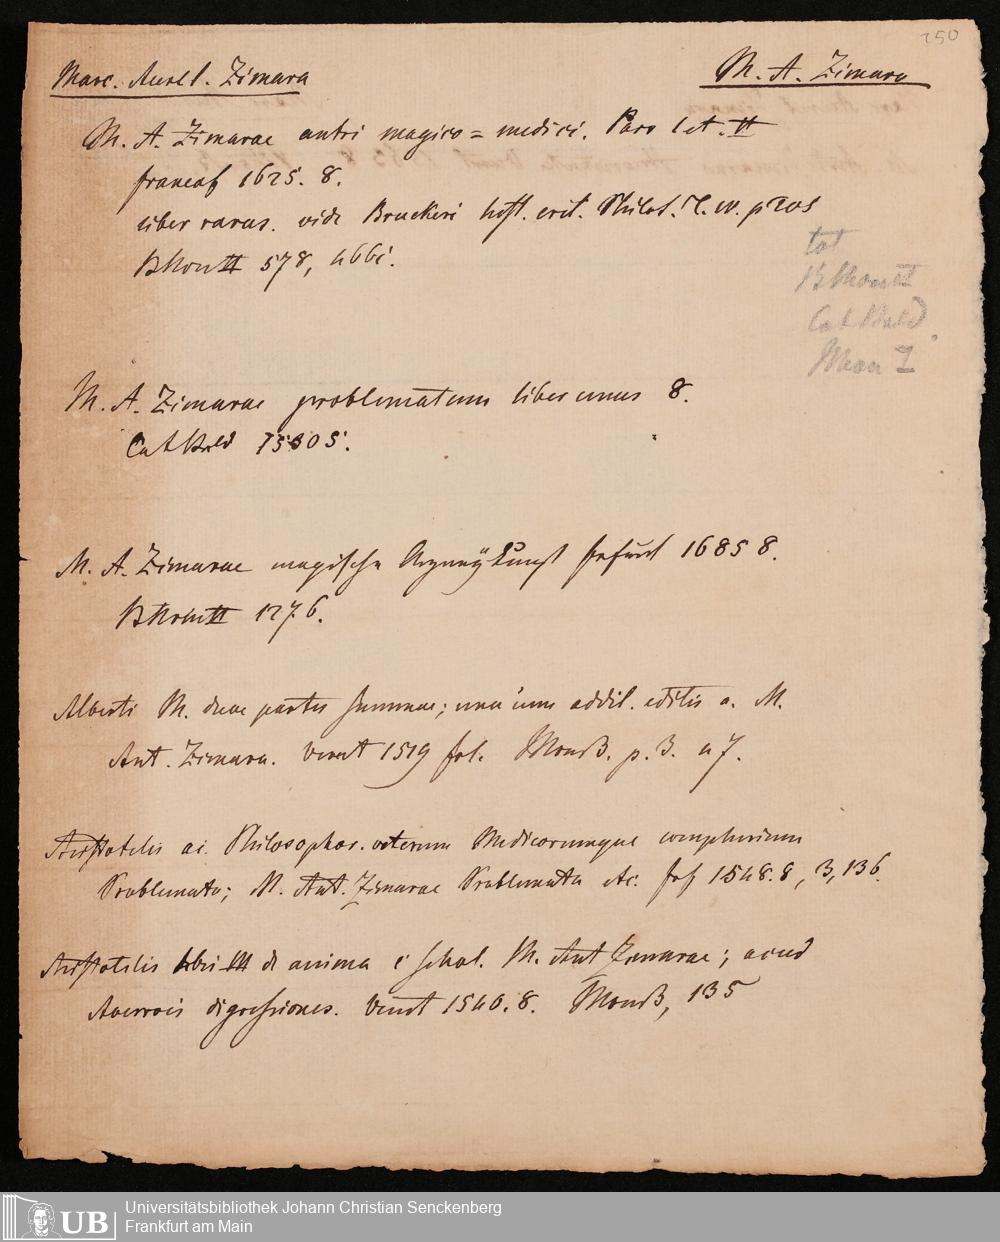 250
Marc. Aurel. Zimara
M. A. Zimara
M. A. Zimarae antri magico = medici. Pars I et. II
francof 1625. 8.
liber rarus. vide Bruckeri hist. crit. Philos. T. IV. p 205
578, 4661.
tot
M. A. Zimarae problematum liber unus 8.
Cat Bald 15305.
M. A. Zimarae magische Arzneÿkunst frfurt 1685 8.
1276.
Alberti M. duae partes summae; una cum addit. editis a. M.
Ant. Zimara. Venet 1519 fol. p. 3. 47.
Aristotelis ac Philosophor. veterum Medicorumque complurium
Problemata; M. Ant. Zimarae Problemata etc. 1548. 8, 3, 136.
Aristotelis libri III de anima c schol. M. Ant Zimarae;
Averrois digressiones. Venet 1540. 8. 135
Universitätsbibliothek Johann Christian Senckenberg
Frankfurt am Main
UB